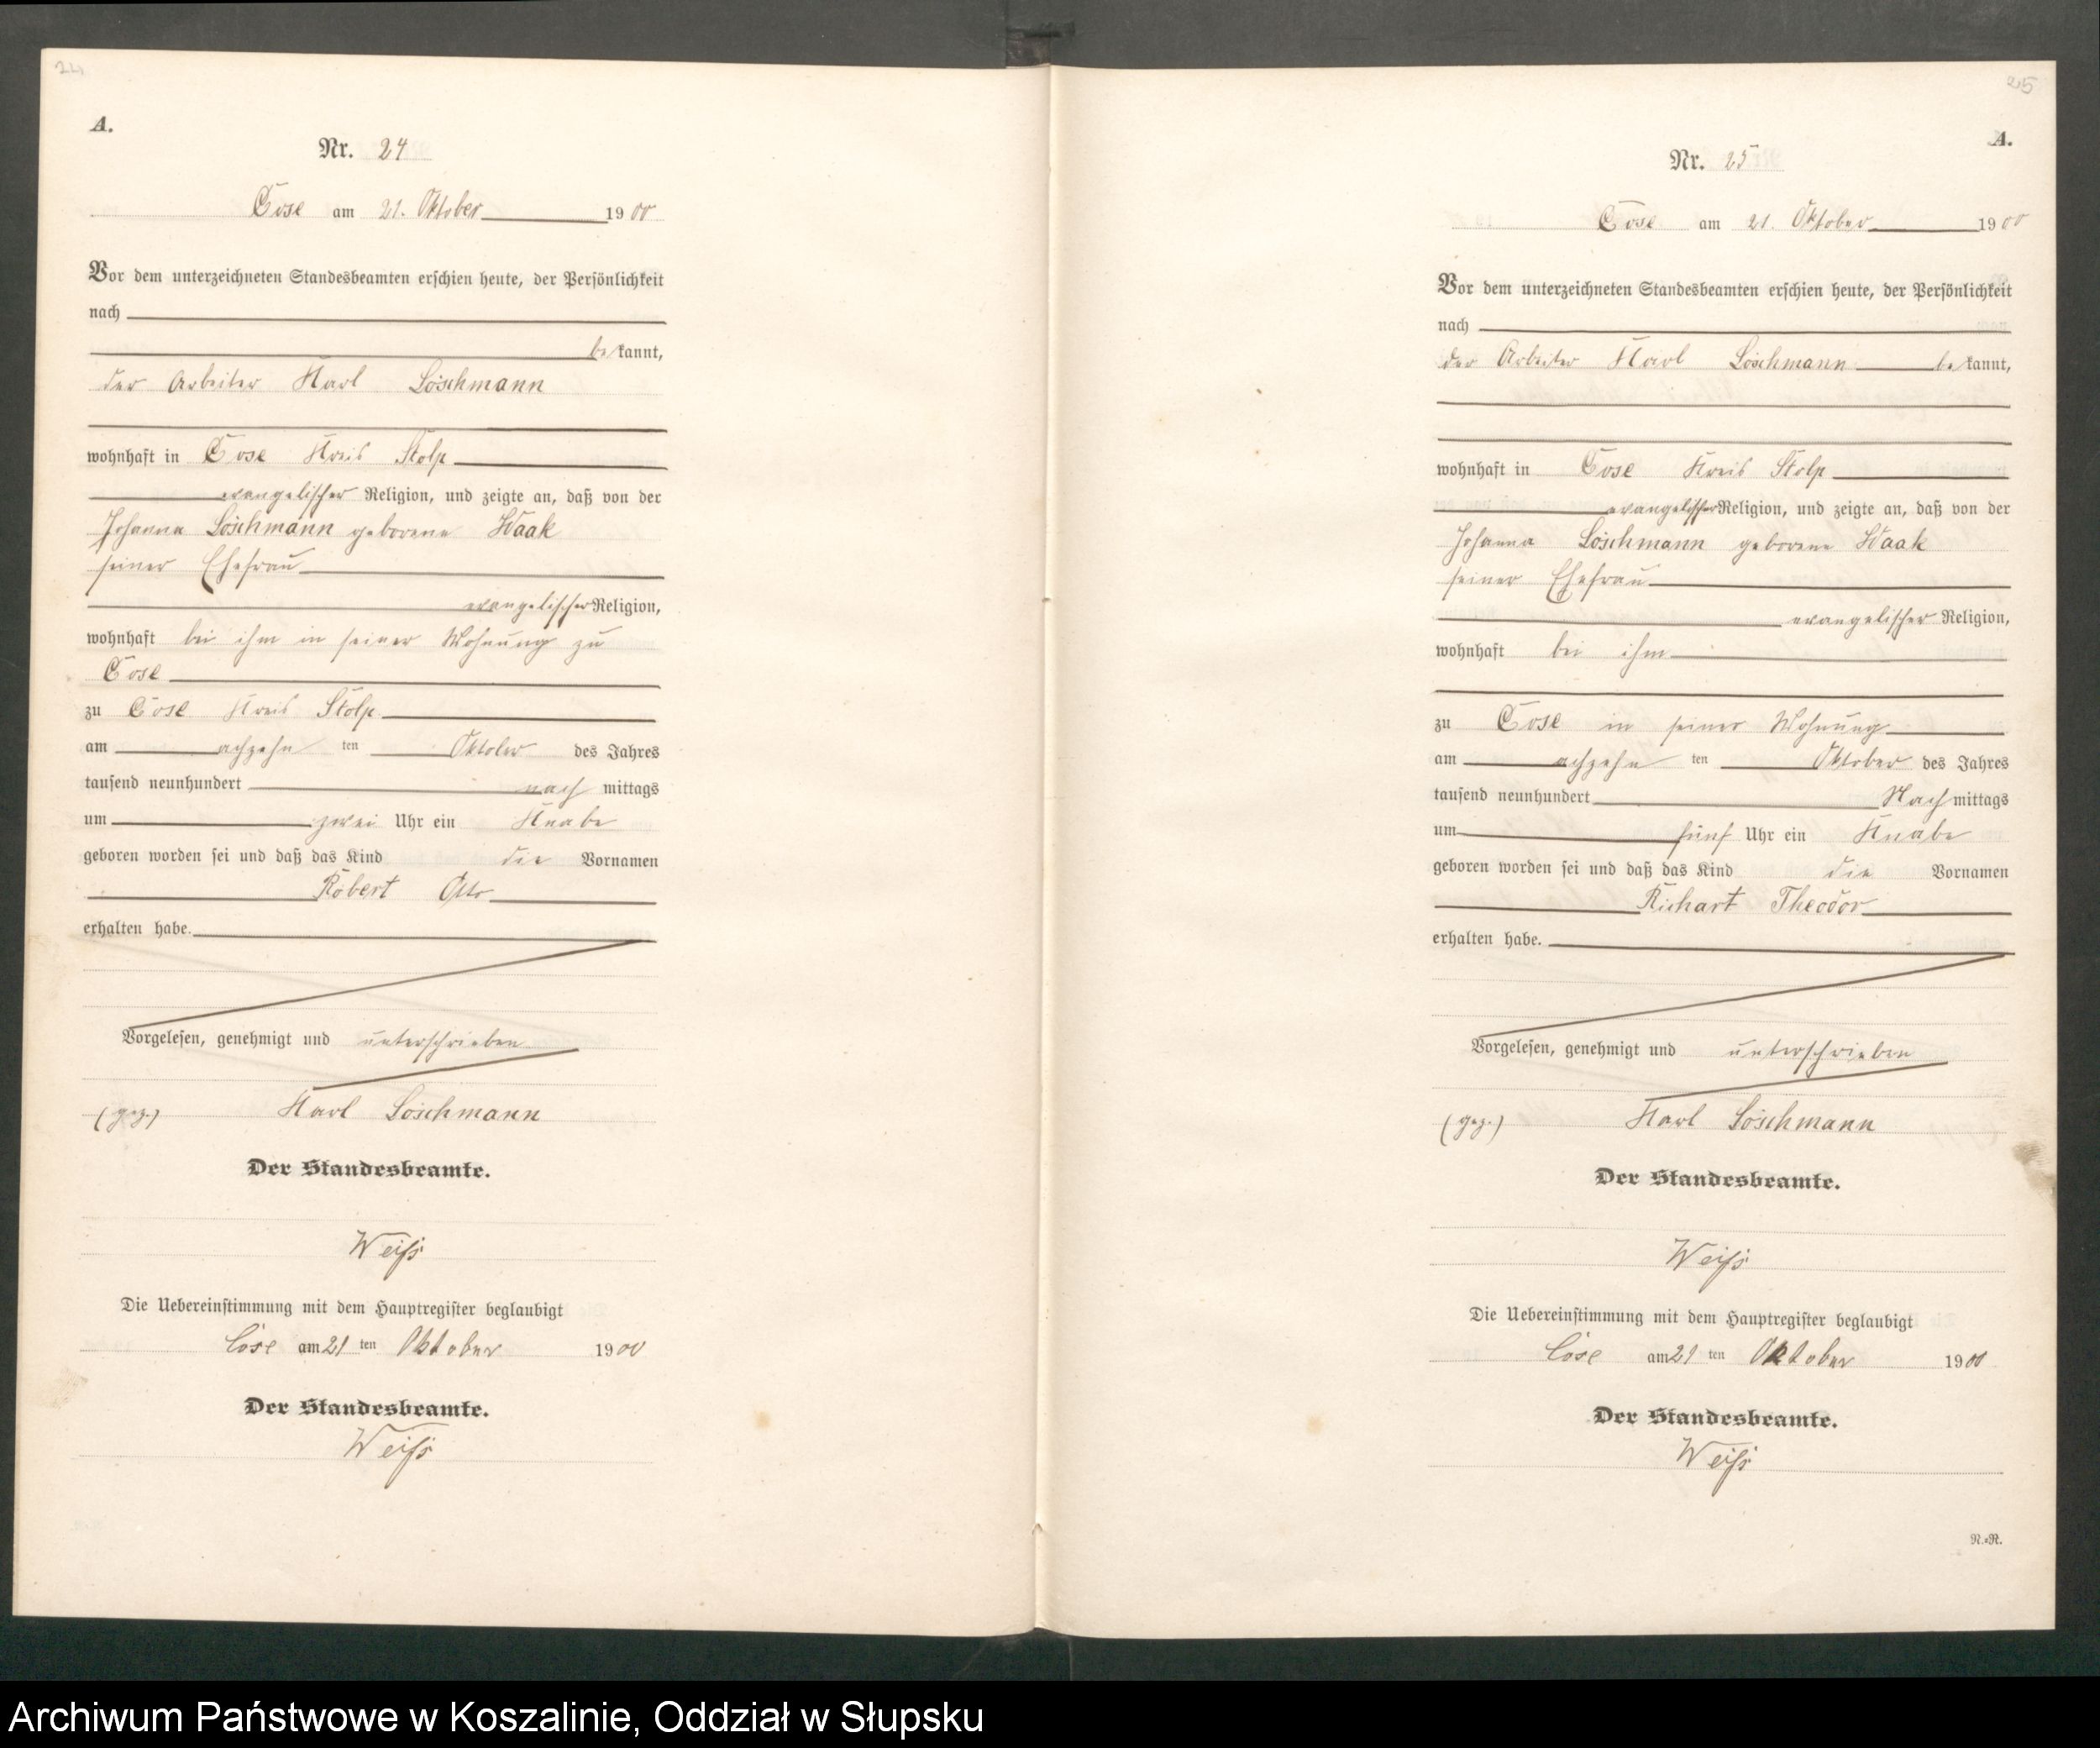 24
A.
Nr. 24
Cose am 21. Oktober 1900
Vor dem unterzeichneten Standesbeamten erschien heute, der Persönlichkeit
nach
bekannt,
der Arbeiter Karl Löschmann
wohnhaft in Cose Kreis Stolp
evangelischer Religion, und zeigte an, daß von der
Johanna Löschmann geborene Waak
seiner Ehefrau
evangelischer Religion,
wohnhaft bei ihm in seiner Wohnung zu
Cose
zu Cose Kreis Stolp
am achzehn ten Oktober des Jahres
tausend neunhundert nach mittags
um zwei Uhr ein Knabe
geboren worden sei und daß das Kind die Vornamen
Robert Otto
erhalten habe.
Vorgelesen, genehmigt und unterschrieben
(gez.) Karl Löschmann
Der Standesbeamte.
Weiß
Die Uebereinstimmung mit dem Hauptregister beglaubigt
Cose am 21 ten Oktober 1900
Der Standesbeamte.
Weiß
25
A.
Nr. 25
Cose am 21. Oktober 1900
Vor dem unterzeichneten Standesbeamten erschien heute, der Persönlichkeit
nach
der Arbeiter Karl Löschmann bekannt,
wohnhaft in Cose Kreis Stolp
evangelischer Religion, und zeigte an, daß von der
Johanna Löschmann geborene Waak
seiner Ehefrau
evangelischer Religion,
wohnhaft bei ihm
zu Cose in seiner Wohnung
am achzehn ten Oktober des Jahres
tausend neunhundert Nach mittags
um fünf Uhr ein Knabe
geboren worden sei und daß das Kind die Vornamen
Richart Theodor
erhalten habe.
Vorgelesen, genehmigt und unterschrieben
(gez.) Karl Löschmann
Der Standesbeamte.
Weiß
Die Uebereinstimmung mit dem Hauptregister beglaubigt
Cose am 21 ten Oktober 1900
Der Standesbeamte.
Weiß
R.=R.
Archiwum Państwowe w Koszalinie, Oddział w Słupsku